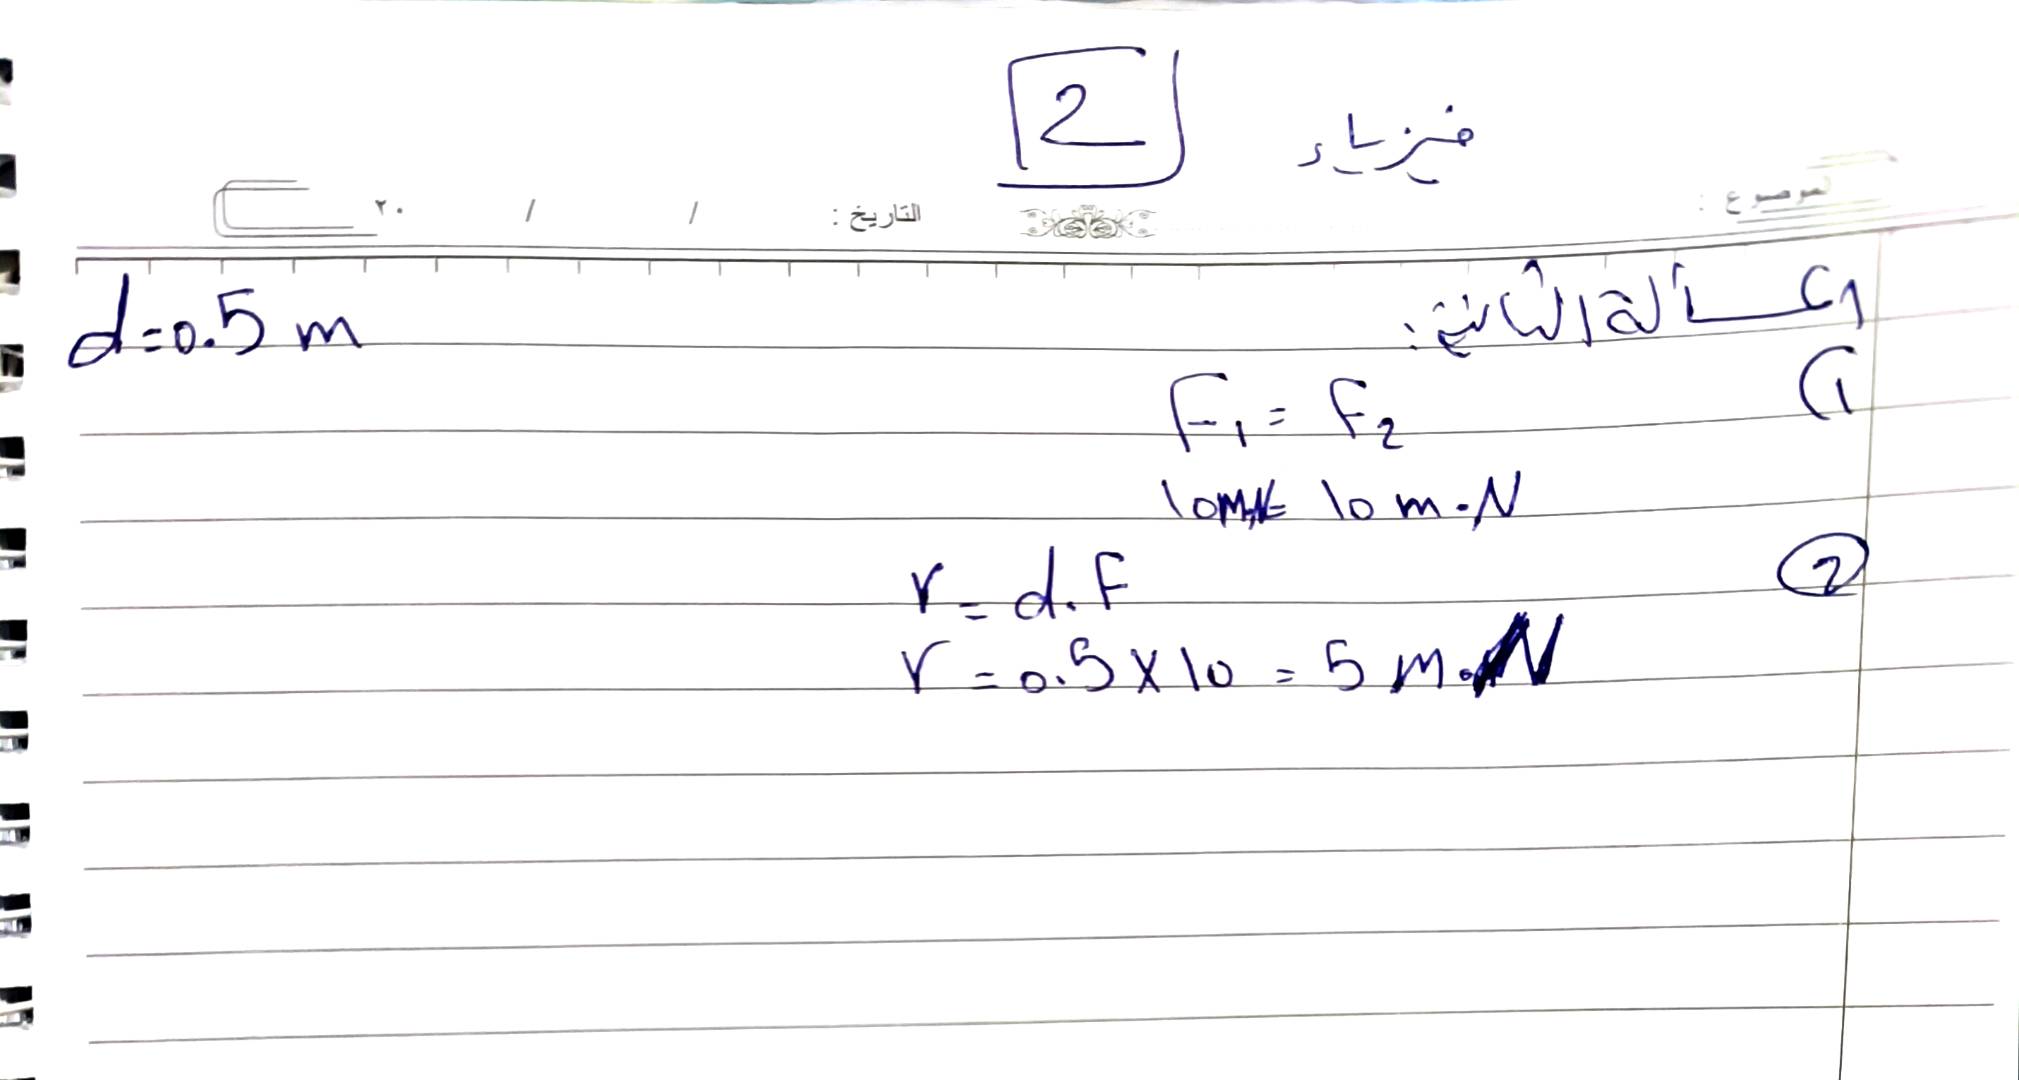 فيزياء 2
الموضوع :
التاريخ : / / ٢٠
المسألة الثانية:
d=0.5 m
1)
F1 = F2
10m.N= 10 m.N
2
r = d.F
r = 0.5 x 10 = 5 m.N